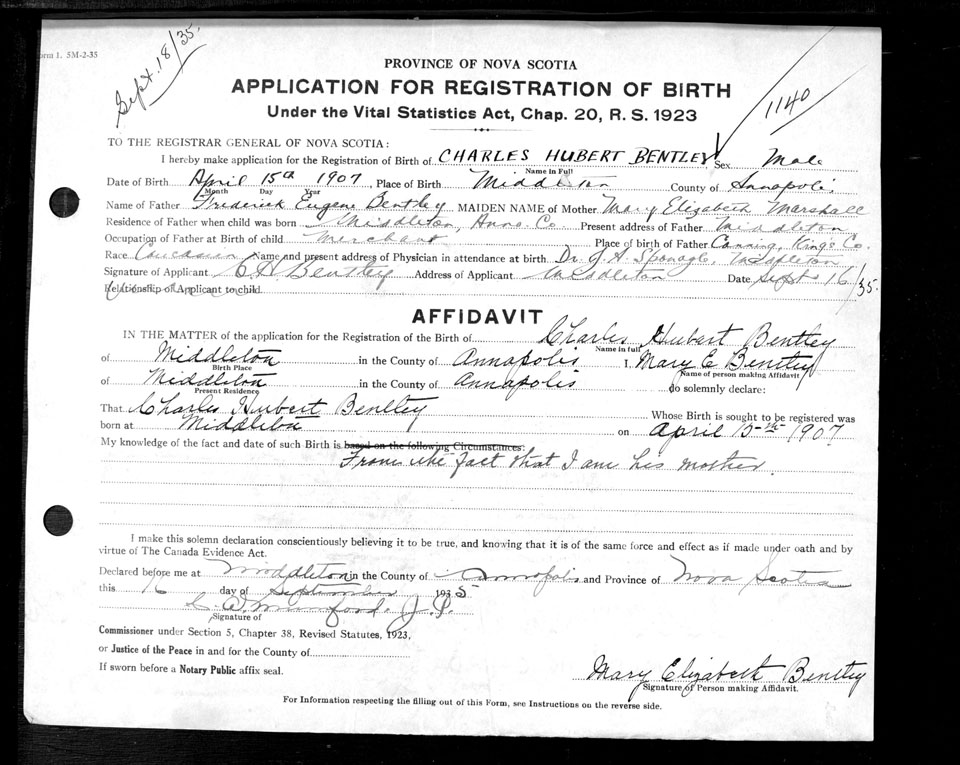 orm 1. 5M-2-35
Sept. 18/35.
PROVINCE OF NOVA SCOTIA
APPLICATION FOR REGISTRATION OF BIRTH
Under the Vital Statistics Act, Chap. 20, R. S. 1923
1140
TO THE REGISTRAR GENERAL OF NOVA SCOTIA:
I hereby make application for the Registration of Birth of CHARLES HUBERT BENTLEY Sex Male
Name in Full
Date of Birth April 15th 1907. Place of Birth Middleton County of Annapolis
Month Day Year
Name of Father Frederick Eugene Bentley MAIDEN NAME of Mother Mary Elizabeth Marshall
Residence of Father when child was born Middleton, Anna Co. Present address of Father Middleton
Occupation of Father at Birth of child Merchant Place of Birth of Father Canning, King's Co.
Race Caucasian Name and present address of Physician in attendance at birth Dr. J. A. Sponagle, Middleton
Signature of Applicant C H Bentley Address of Applicant Middleton Date Sept 16/35.
Relationship of Applicant to child
AFFIDAVIT
IN THE MATTER of the application for the Registration of Birth of Charles Hubert Bentley
Name in full
of Middleton in the County of Annapolis I, Mary E Bentley
Birth Place Name of person making Affidavit
of Middleton in the County of Annapolis do solemnly declare:
Present Residence
That Charles Hubert Bentley Whose Birth is sought to be registered was
born at Middleton on April 15th 1907
My knowledge of the fact and date of such Birth is based on the following Circumstances:
From the fact that I am his mother.
I make this solemn declaration conscientiously believing it to be true, and knowing that it is of the same force and effect as if made under oath and by
virtue of The Canada Evidence Act.
Declared before me at Middleton in the County of Annapolis and Province of Nova Scotia
this 16 day of September 1935
C. W. Mumford. J. P.
Signature of
Commissioner under Section 5, Chapter 38, Revised Statutes, 1923,
or Justice of the Peace in and for the County of
If sworn before a Notary Public affix seal.
Mary Elizabeth Bentley
Signature of Person making Affidavit.
For Information respecting the filling out of this Form, see Instructions on the reverse side.